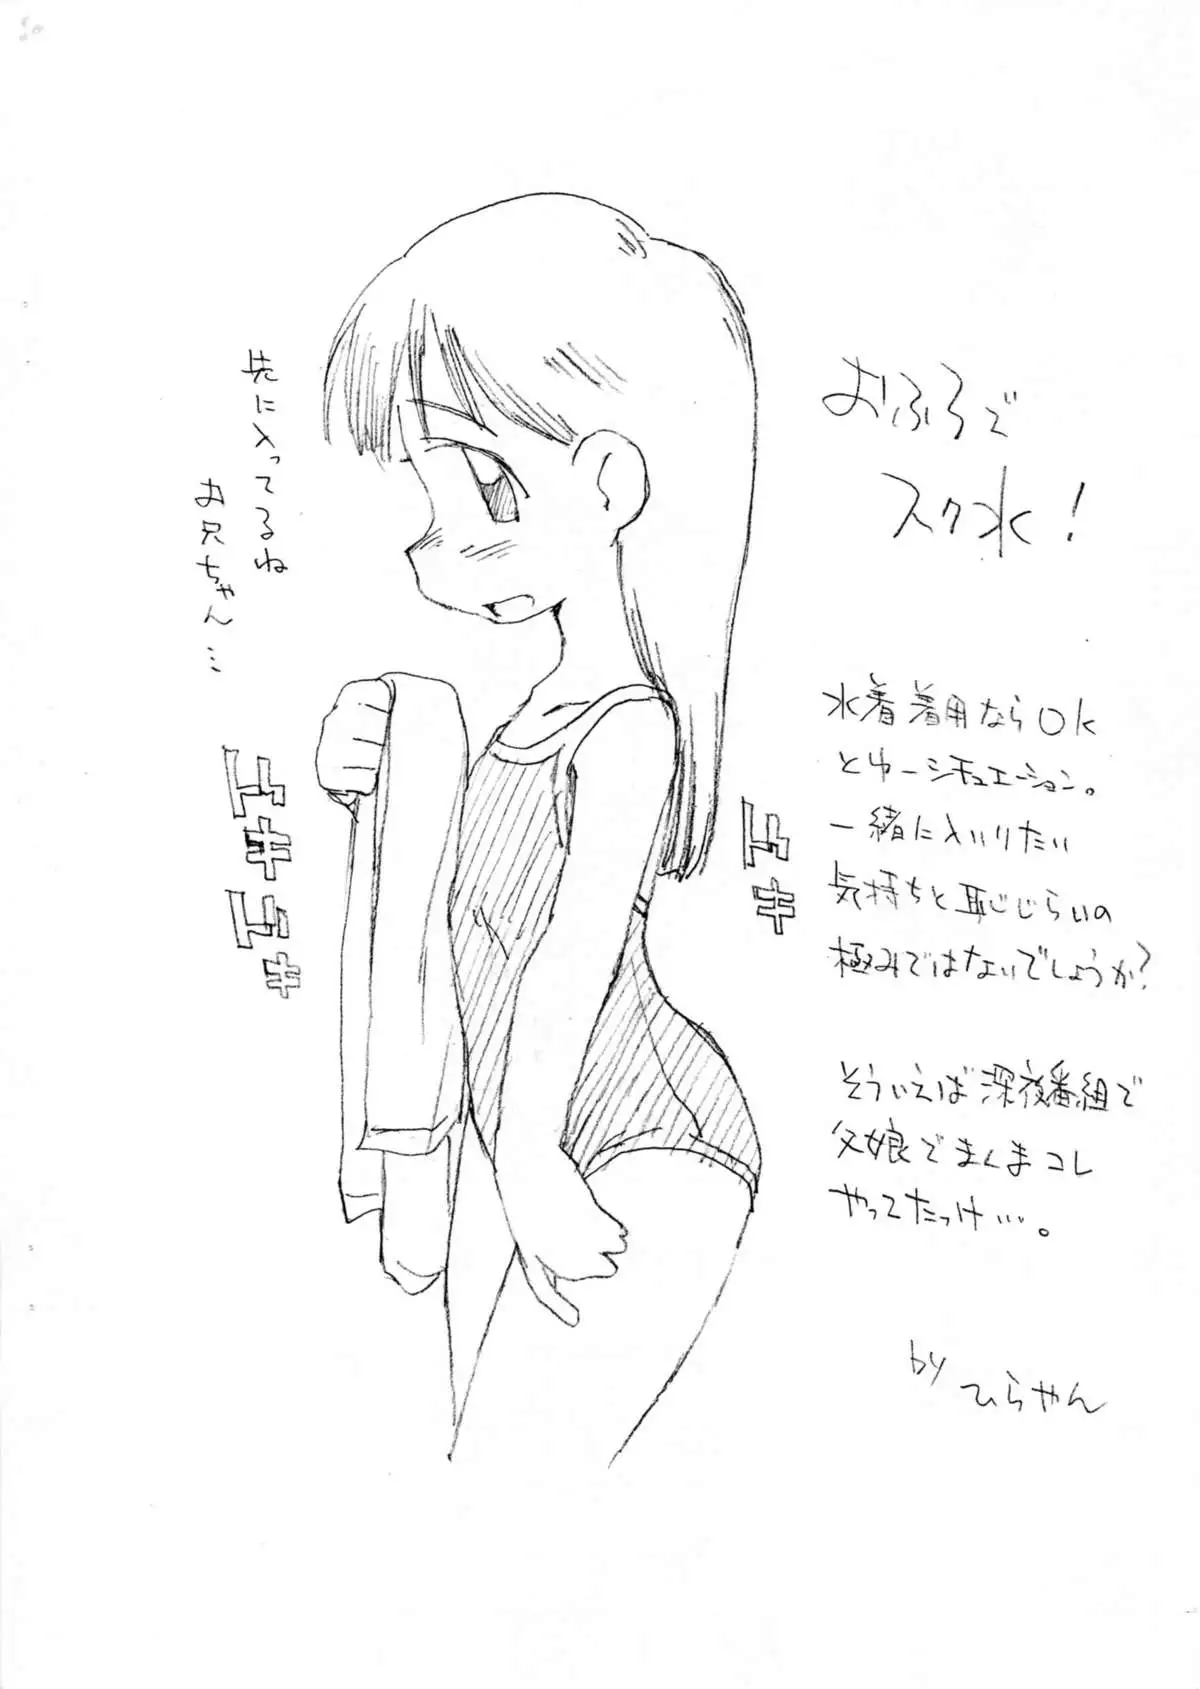 おふろで
スク水！
先に入ってるね
お兄ちゃん…
ドキドキ
ドキ
水着着用ならOK
とゆーシチュエーション。
一緒に入いりたい
気持ちと恥じらいの
極みではないでしょうか？
そういえば深夜番組で
父娘でまんまコレ
やってたっけ…。
by
ひらやん